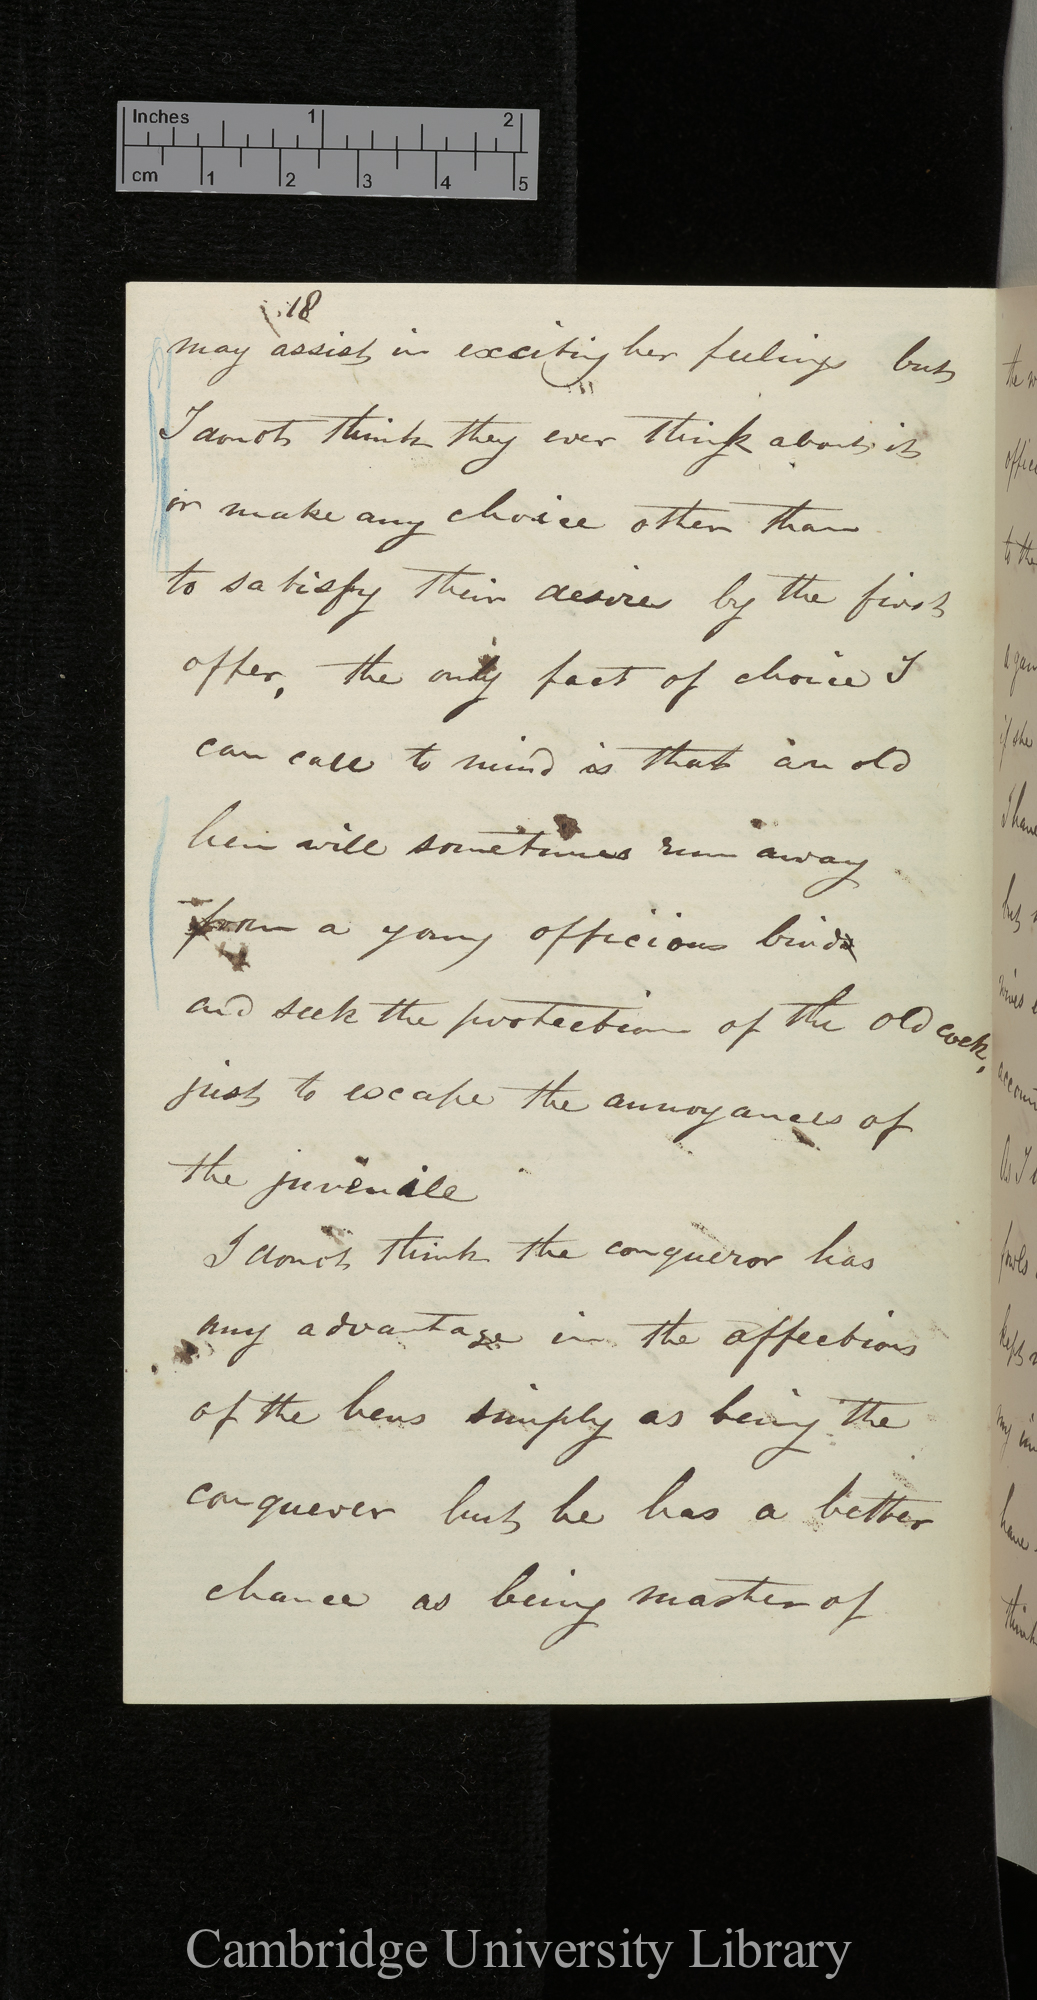 Inches 1 2
cm 1 2 3 4 5
18
may assist in exciting her feelings but
I donot think they ever think about it
or make any choice other than
to satisfy their desires by the first
offer, the only fact of choice I
can call to mind is that an old
hen will sometimes run away
from a young officious bird
and seek the protection of the old cock,
just to escape the annoyances of
the juvenile
I donot think the conqueror has
any advantage in the affections
of the hens simply as being the
conquerer but he has a better
chance as being master of
the
offic
to the
a gam
if she
I have
but
wives
accoun
As I
fowls
kept
my in
have
think
Cambridge University Library